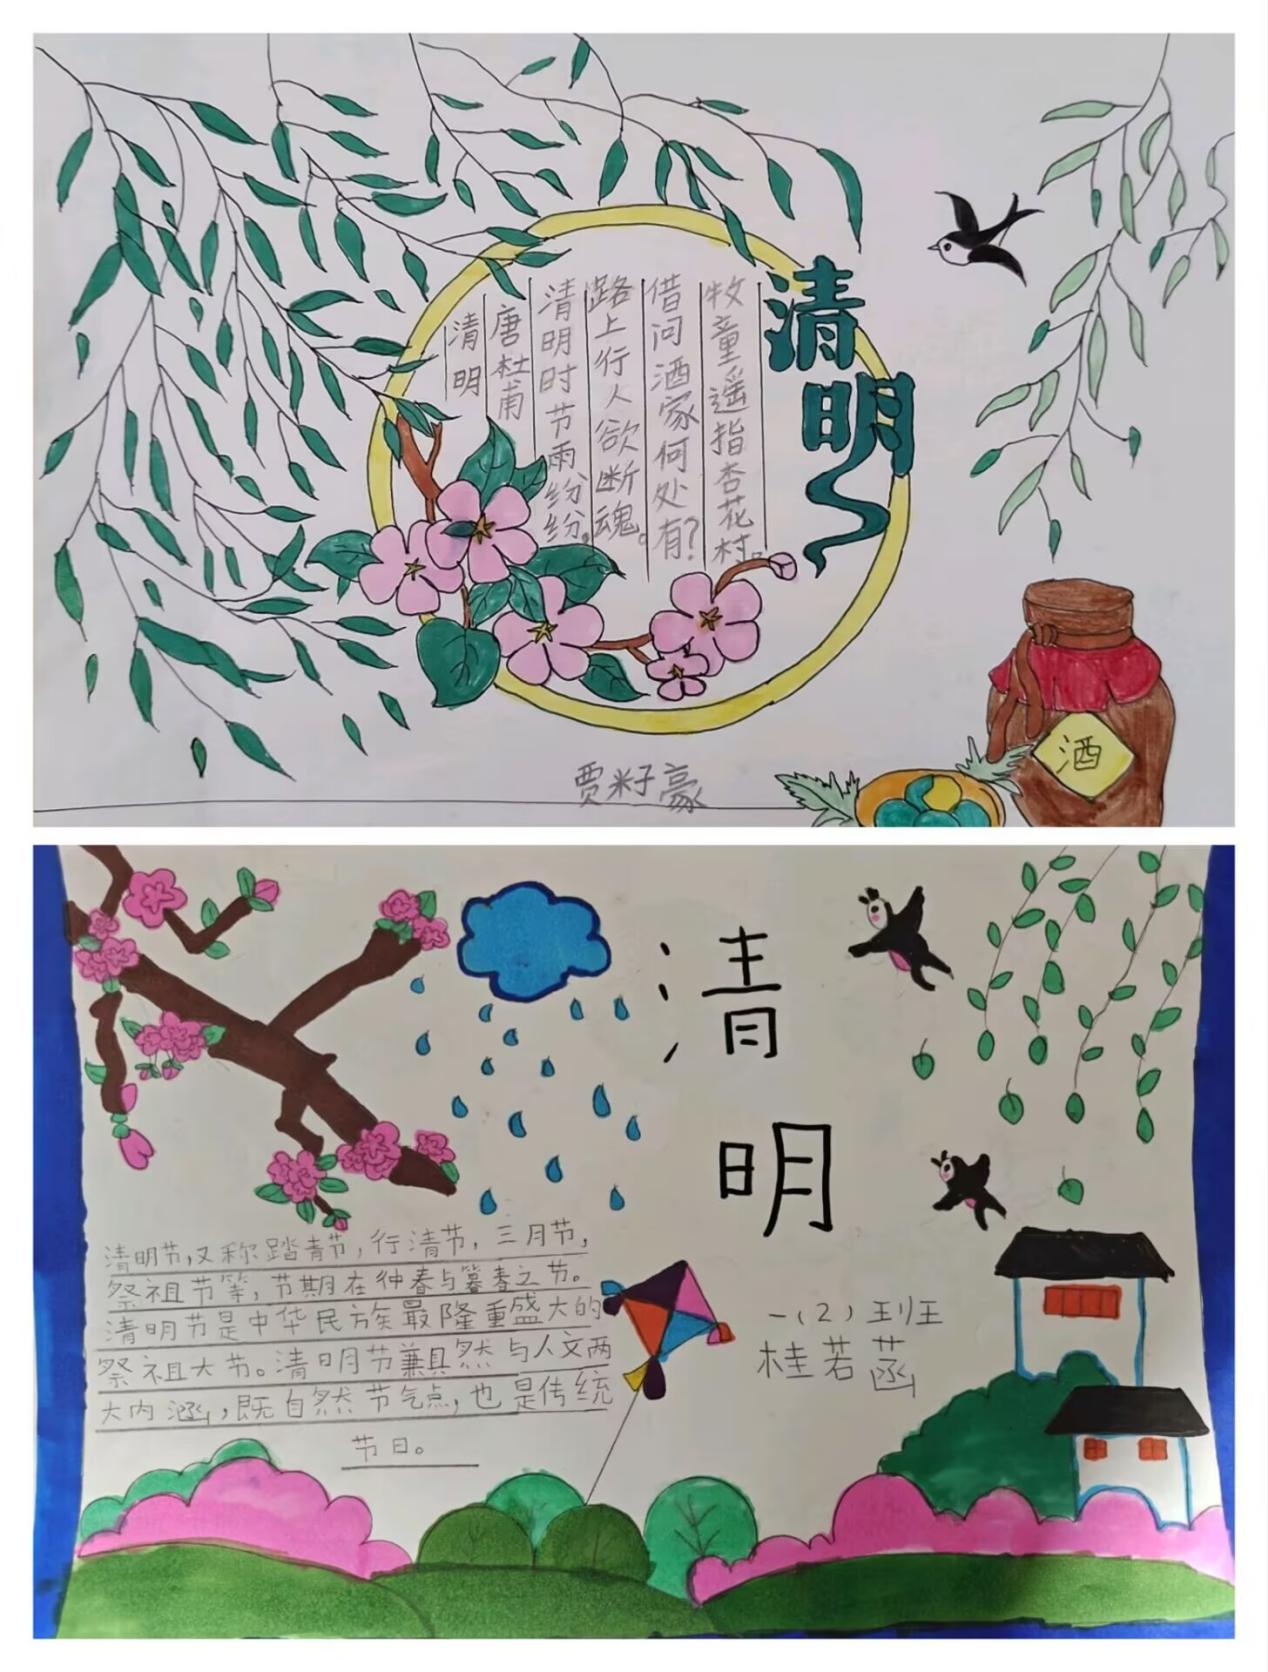 清明
清明
唐杜甫
清明时节雨纷纷。
路上行人欲断魂。
借问酒家何处有？
牧童遥指杏花村。
酒
贾籽豪
清
明
清明节，又称踏青节，行清节，三月节，
祭祖节等，节期在仲春与暮春之节。
清明节是中华民族最隆重盛大的
祭祖大节。清明节兼具然与人文两
大内涵，既自然节气点，也是传统
节日。
一（2）班
桂若菡